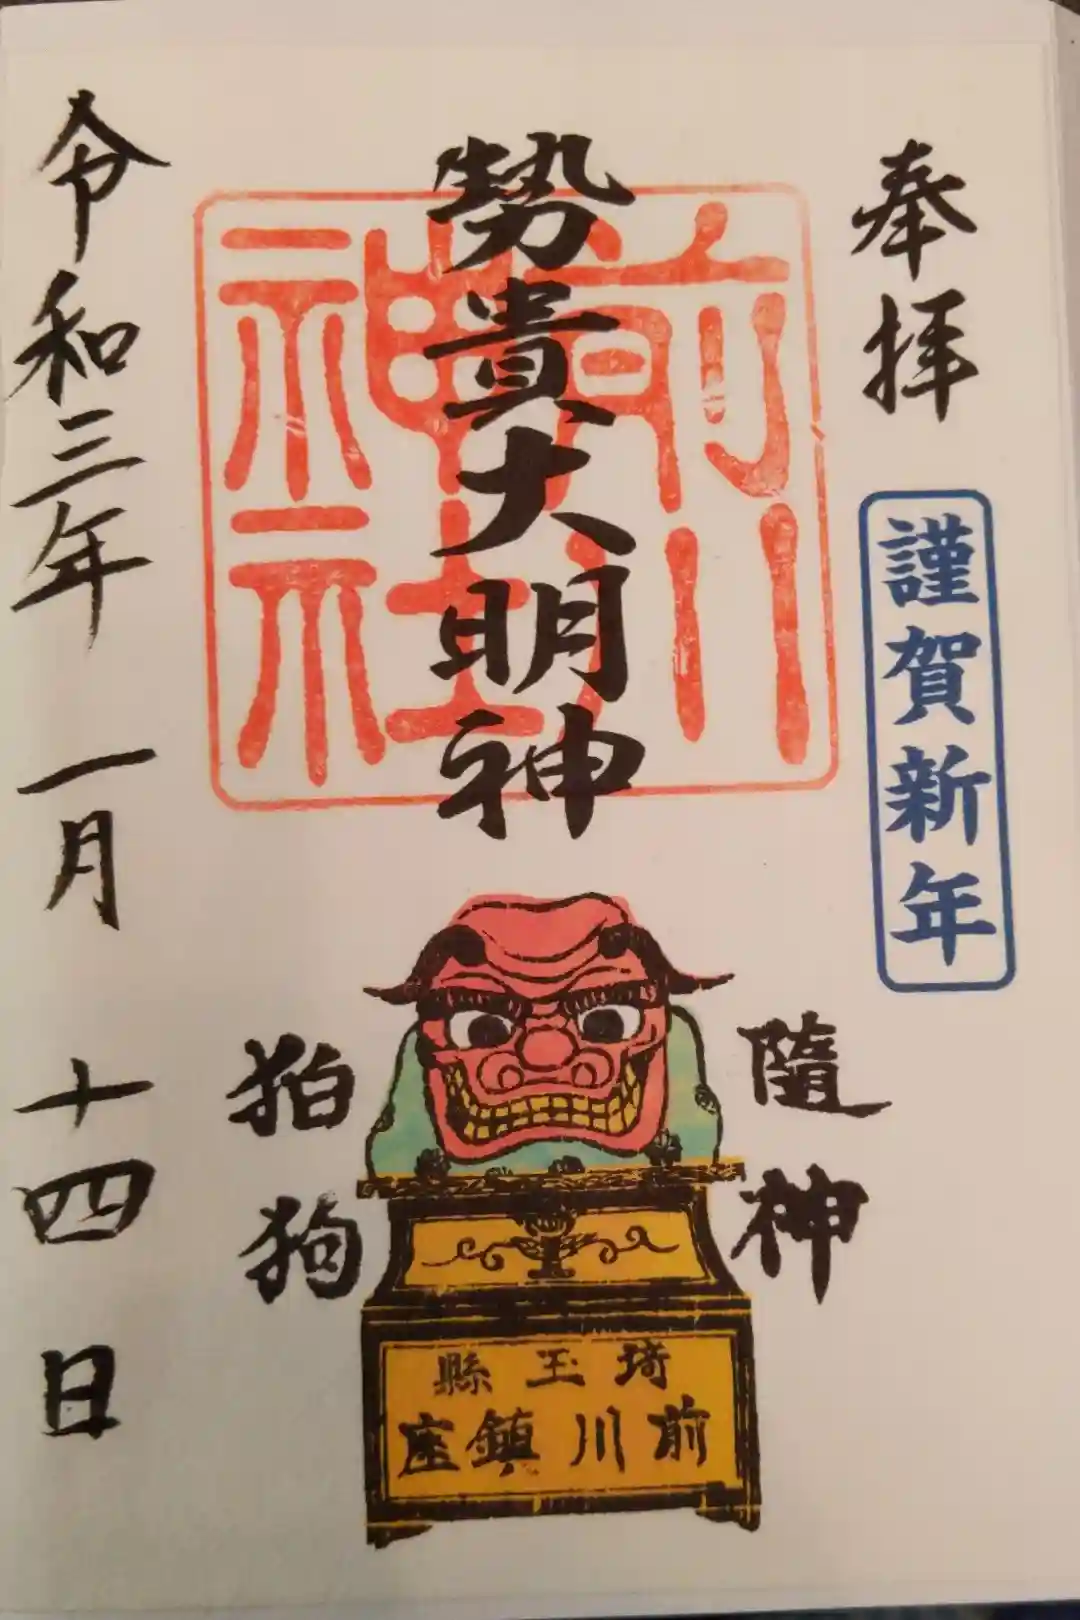 奉拝
謹賀新年
勢貴大明神
前川
神社
隨神
狛狗
埼玉縣
前川鎮座
令和三年 一月 十四日